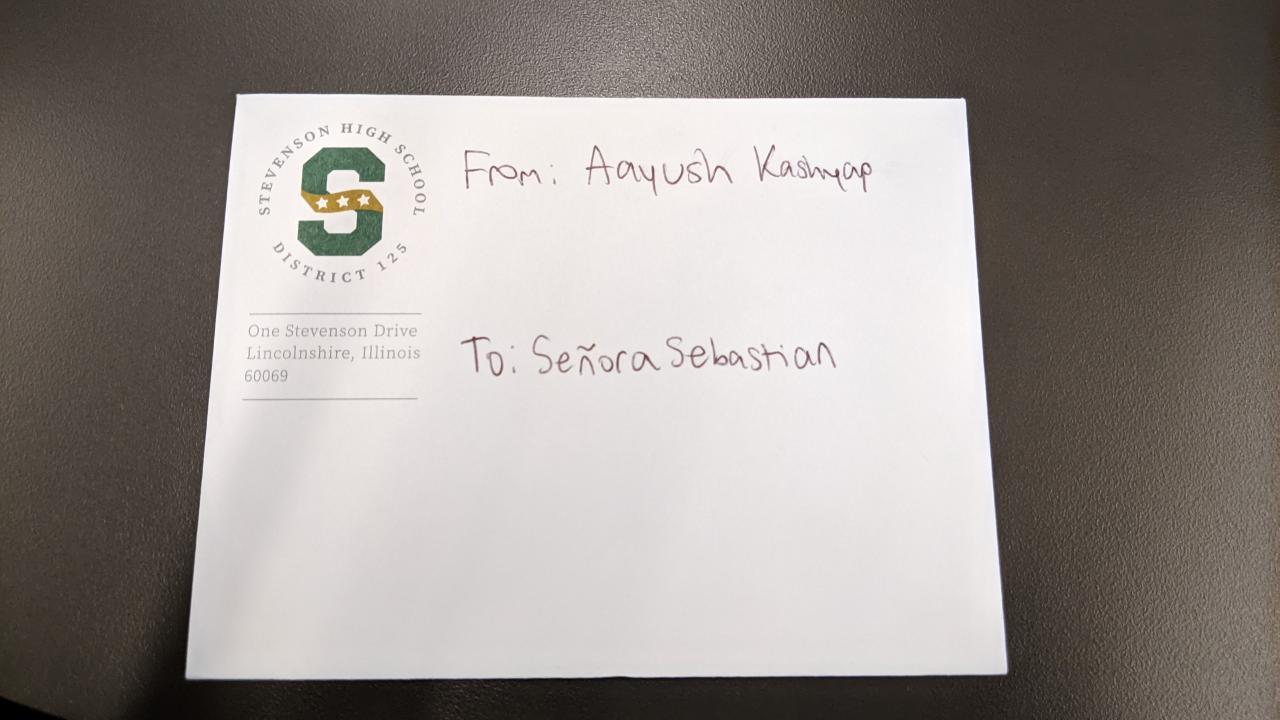 STEVENSON HIGH SCHOOL
DISTRICT 125
One Stevenson Drive
Lincolnshire, Illinois
60069
From: Aayush Kashyap
To: Señora Sebastian